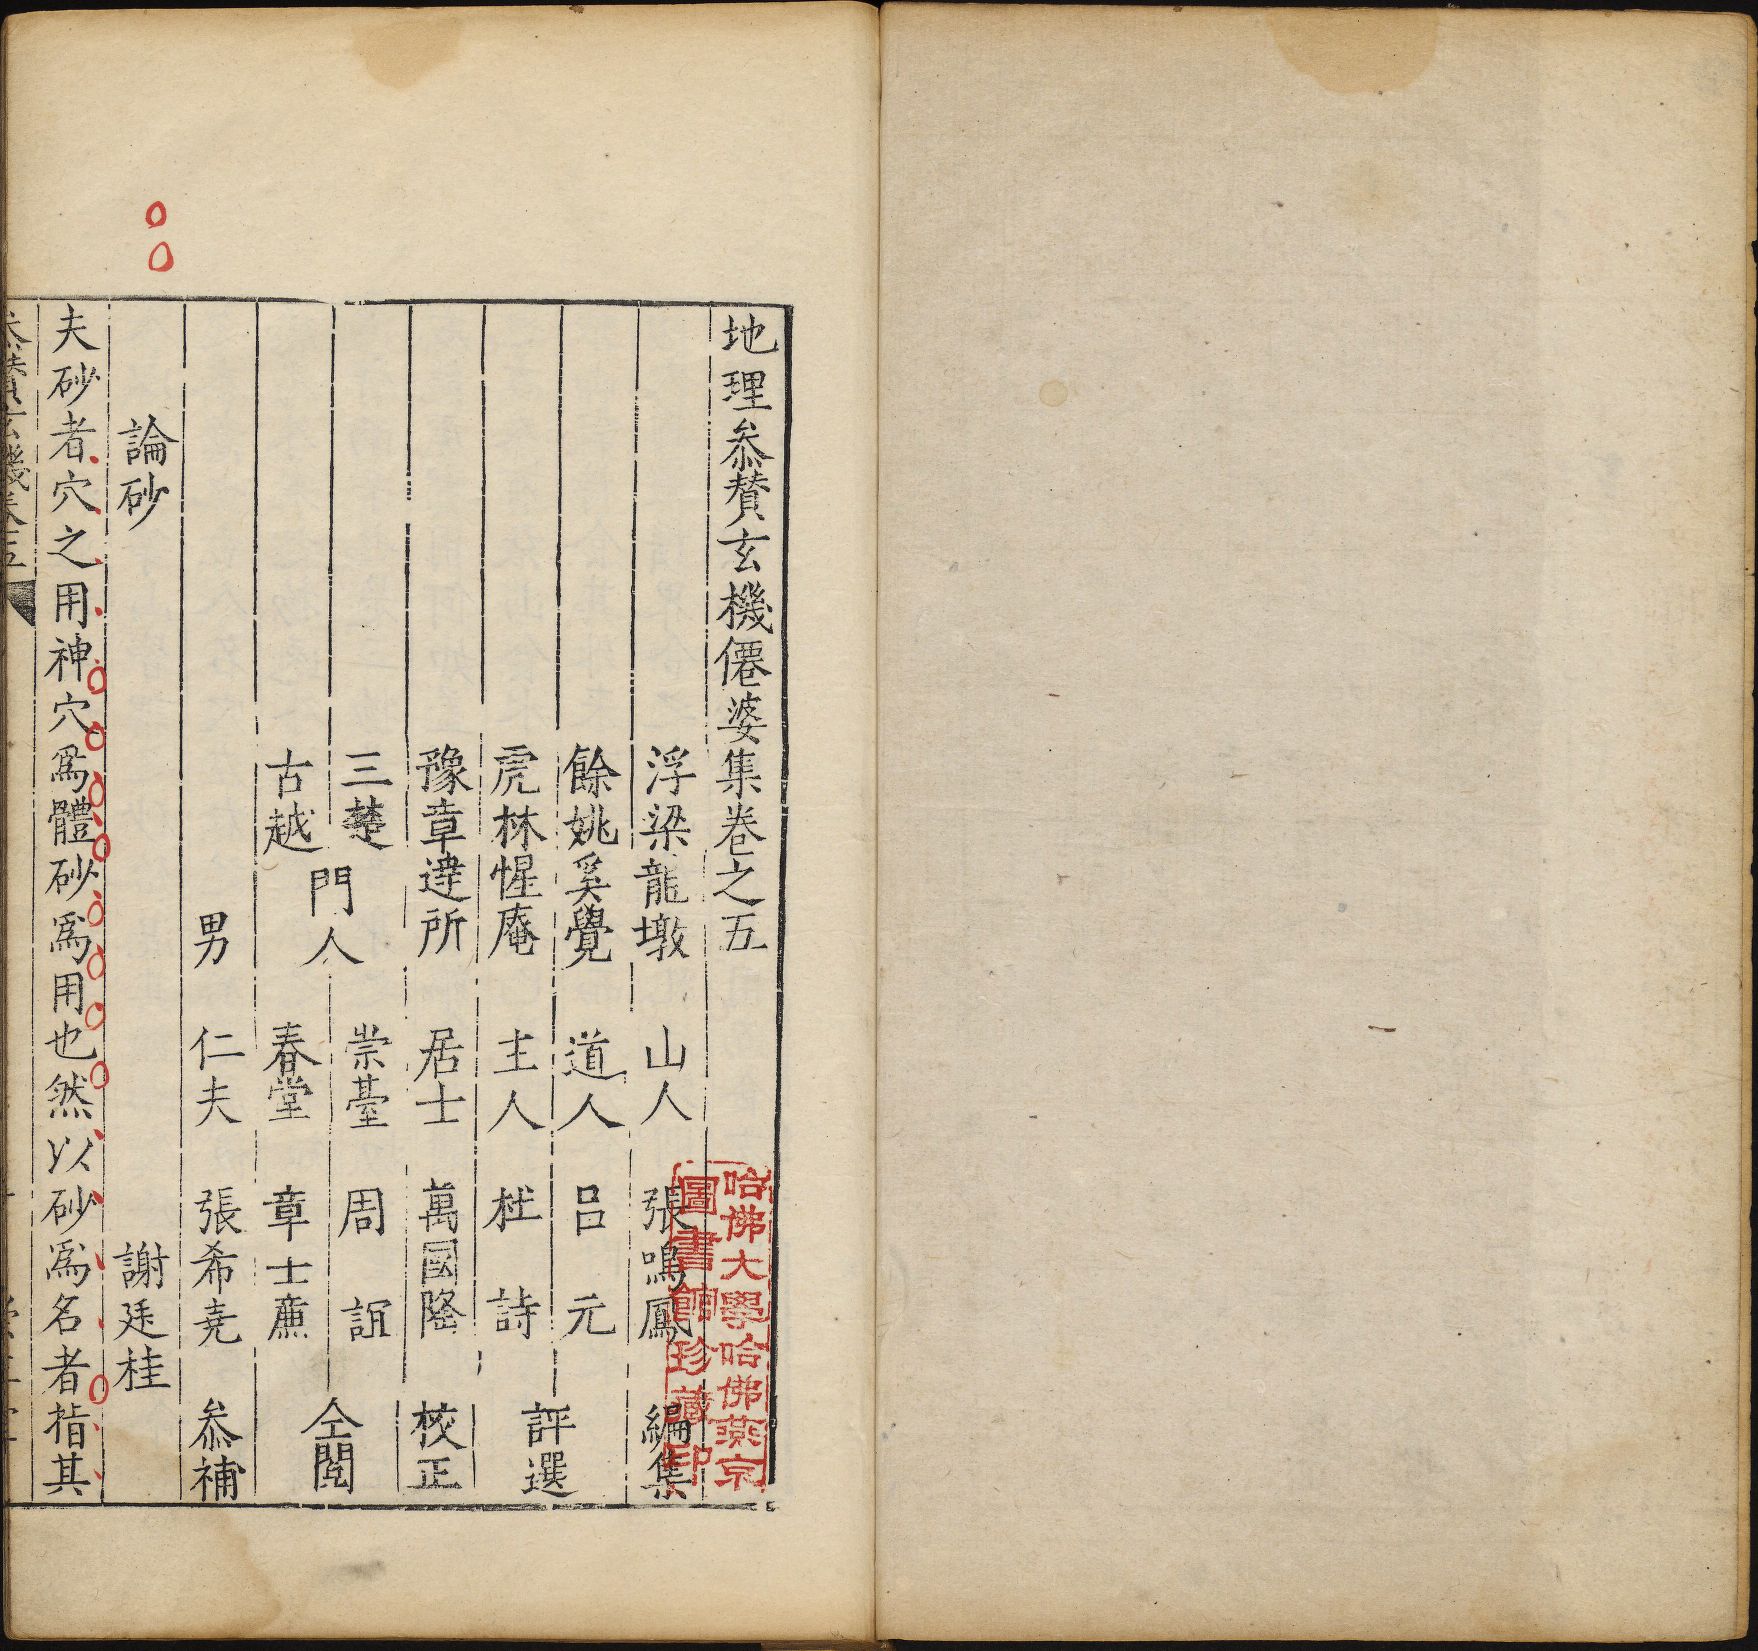 地理叅賛玄機僊婆集卷之五
浮梁龍墩　山人　張鳴鳳　編集
餘姚奚覺　道人　呂　元
評選
虎林惺庵　主人　杜　詩
豫章達所　居士　萬國隆　校正
三楚　崇臺　周　誼
門人　仝閱
古越　春堂　章士䕠
男　仁夫　張希堯　叅補
論砂　謝廷桂
夫砂者穴之用神穴爲體砂爲用也然以砂爲名者指其
叅賛玄機卷五
哈佛大學哈佛燕京
圖書館珍藏印